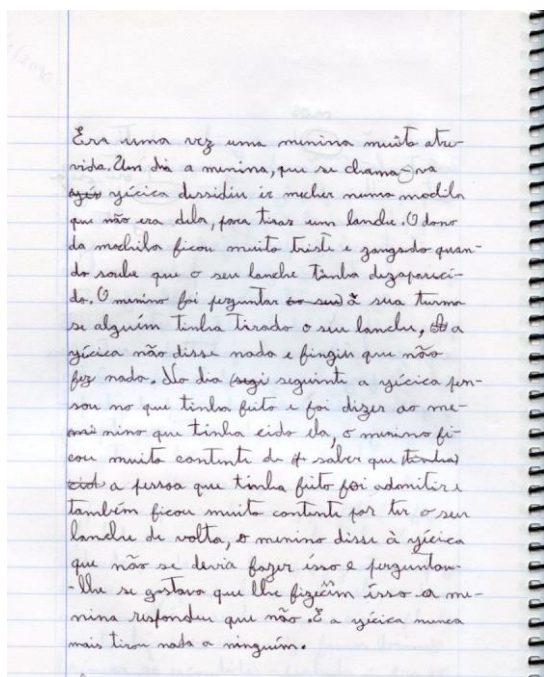 Era uma vez uma menina muito atre-
vida. Um dia a menina, que se chama-va
yécica dessidiu ir mecher numa modila
que não era dela, para tirar um lanche. O dono
da mochila ficou muito triste e zangado quan-
do soube que o seu lanche tinha dezapareci-
do. O menino foi perguntar ao seu à sua turma
se alguém tinha tirado o seu lanche, a
yécica não disse nada e fingiu que não
fez nada. No dia (segi) seguinte a yécica pen-
sou no que tinha feito e foi dizer ao me-
mi nino que tinha cido ela, o menino fi-
cou muito contente de saber que (tinha)
cido a pessoa que tinha feito foi admitir e
também ficou muito contente por ter o seu
lanche de volta, o menino disse à yécica
que não se devia fazer isso e perguntou-
-lhe se gostava que lhe fizecem isso a me-
nina respondeu que não. E a yécica nunca
mais tirou nada a ninguém.